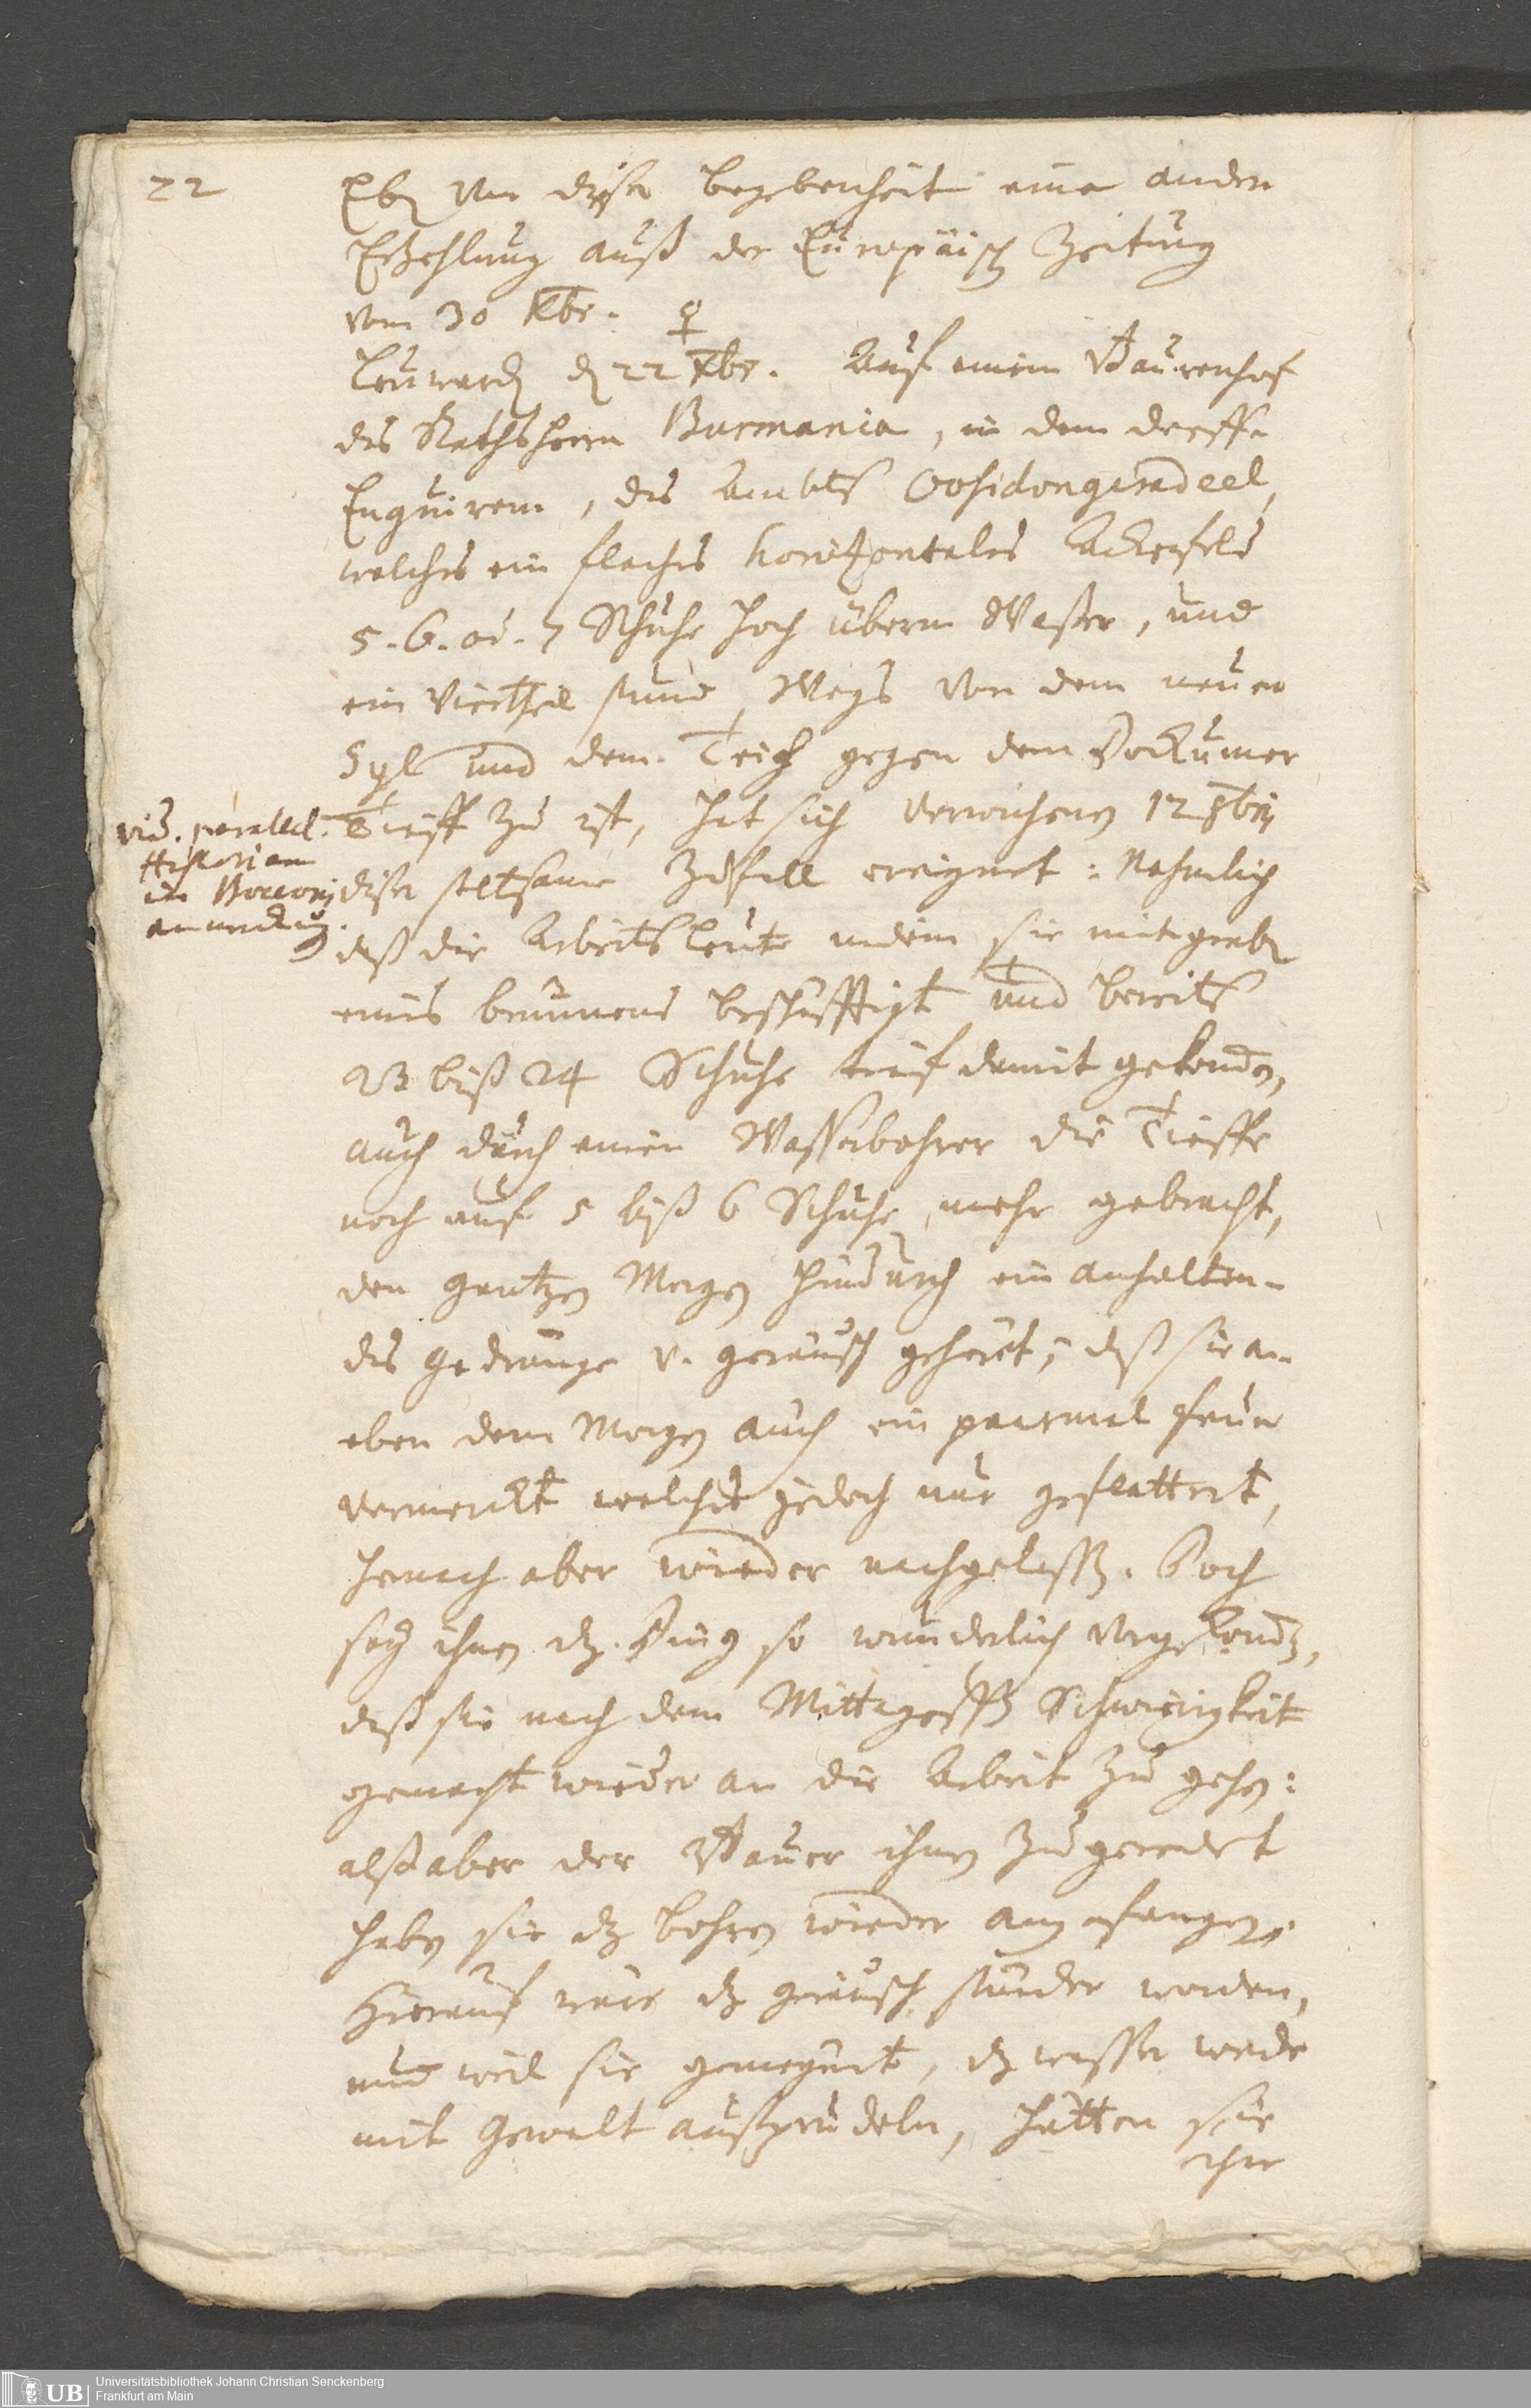 22
Eben von dieser begebenheit eine andere
Erzehlung auß der Europäisch Zeitung
vom 30 Xbr. ♀
Leuward d 22 Xbr. Auf einem Baurenhof
des Rathsherrn Burmania, in dem dorffe
Enguirem, des Ambts Oostdongeradeel,
welches ein flaches horizontales Ackerfeld
5. 6. od. 7 Schuhe hoch überm Waßer, und
ein Viertheil stund Wegs von dem neuen
Syl und dem Teich gegen dem Dockumer
Tieff zu ist, hat sich verwichenen 12
diser seltsame Zufall ereignet: Nahmlich
vid. parallel.
Historiam
in Bocconi
anmerckung.
daß die Arbeitsleute indem sie mit graben
eines brunnens beschäfftigt und bereits
23 biß 24 Schuhe tief damit gekommen,
auch durch einen Wasserbohrer die Tieffe
noch auf 5 biß 6 Schuhe mehr gebracht,
den gantzen Morgen hindurch ein anhalten-
des gedränge v. geräusch gehöret, daß sie an
eben dem Morgen auch ein paarmal feuer
vermerckt welches jedoch nur geflattert,
hernach aber wieder nachgelassen. Doch
sey ihnen dz. Ding so wunderlich vorgekommen,
daß sie nach dem Mittagessen Schwierigkeit
gemacht wieder an die Arbeit zu gehen:
alß aber der Bauer ihnen zugeredet
haben sie dz bohren wieder angefangen.
Hierauf wäre dz geräusch stärcker worden,
und weil sie gemeynet, dz wasser werde
mit Gewalt außsprudeln, hätten sie
ihre
UB
Universitätsbibliothek Johann Christian Senckenberg
Frankfurt am Main